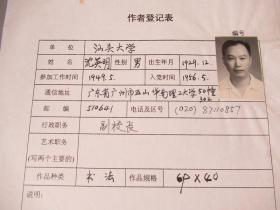 作者登记表
编号
单位 汕头大学
姓名 沈英明 性别 男 出生年月 1929.12.
参加工作时间 1949.5. 入党时间 1956.5.
通信地址 广东省广州市五山华南理工大学50幢302
邮编 510641 电话及区号 (020) 87110857
行政职务 副校长
艺术职务
(写两个主要的)
作品种类 书法 作品规格 69×40
说明: